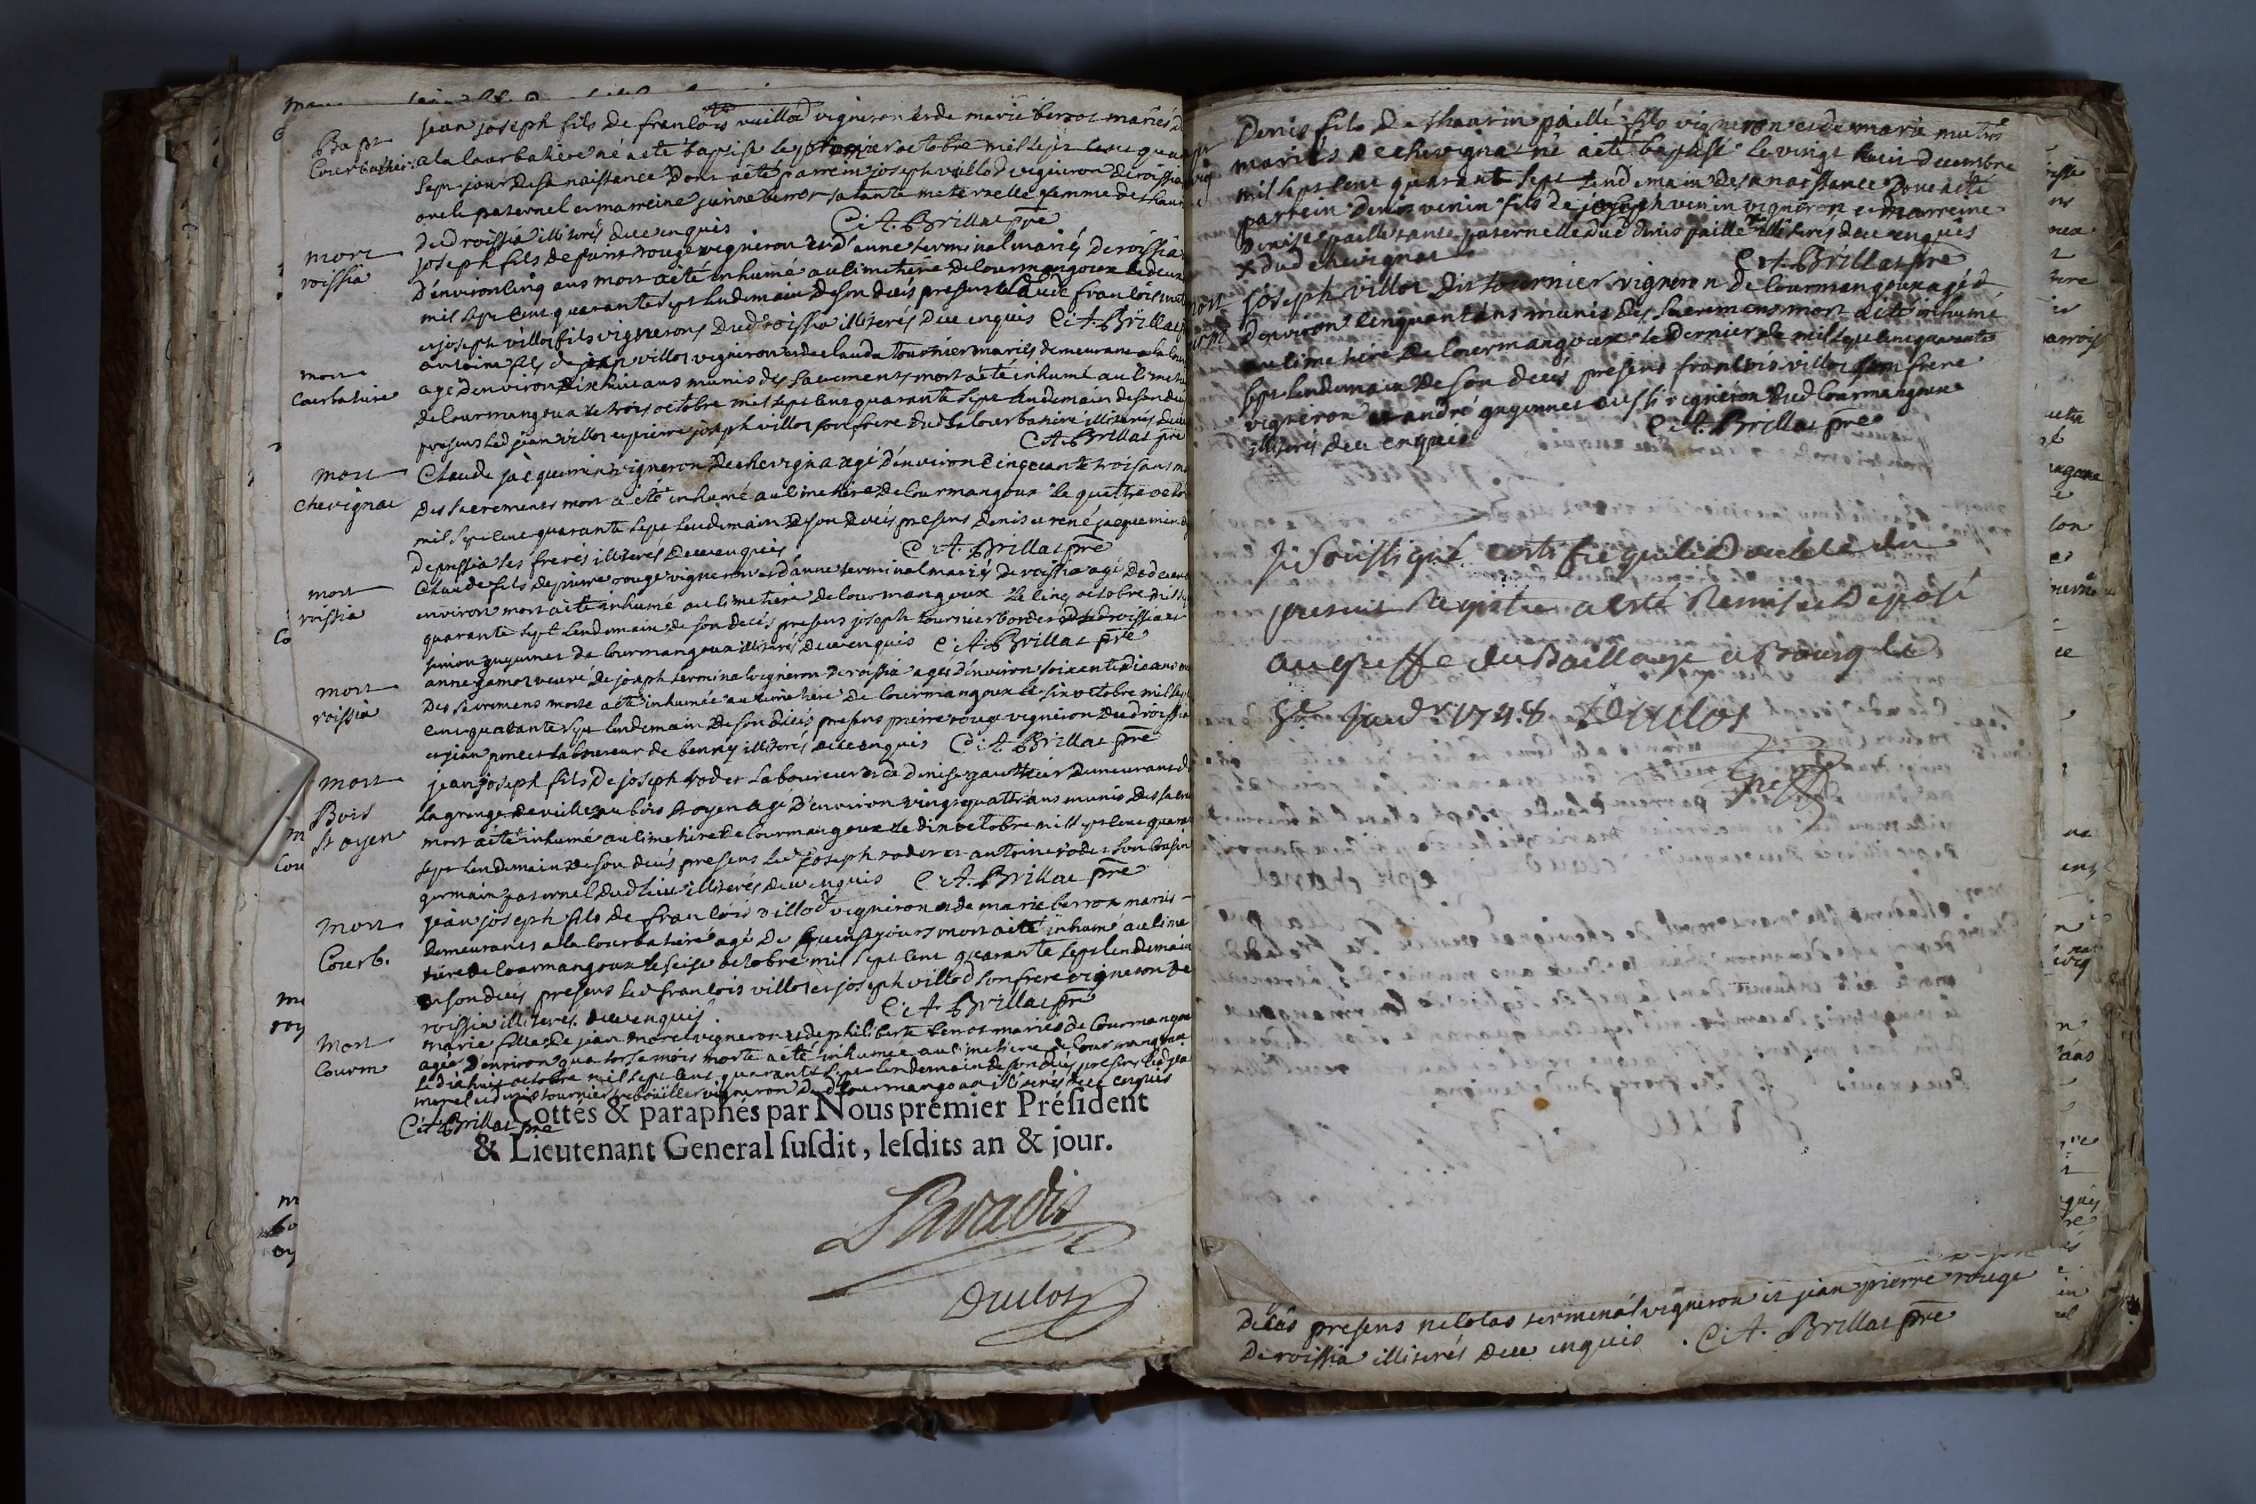 Bapt
Courbatiere
jean joseph fils de francois vuillod vigneron et de marie berrot mariés
a la courbatiere né a eté baptisé le premier octobre mil sept cent quara
sept jour de sa naissance dont a été parrein joseph villod vigneron de roissia
oncle paternel et marreine jeanne berrot sa tante maternelle femme de
dud roissia illiterés de ce enquis C: A: Brillat pre
mort
roissia
joseph fils de pierre rouge vigneron et d'anne terminal mariés de roissia
d'environ cinq ans mort a eté inhumé au cimetiere de courmangoux le deux
mil sept cent quarante sept lendemain de son decés presens francois
et joseph villot fils vignerons dud roissia illiterés de ce enquis C: A: Brillat
mort
Courbatiere
antoine fils de jean villot vigneron et de clauda tournier mariés demeurant a la cou
agé d'environ dix huit ans munis des sacrements mort a eté inhumé au cimeti
de courmangoux le trois octobre mil sept cent quarante sept lendemain de son de
presens led jean villot et pierre joseph villot son frere dud la courbatiere illiterés de ce
C: A: Brillat pre
mort
chevignat
Claude jacquemin vigneron de chevigna agé d'environ cinquante trois ans
des sacrements mort a eté inhumé au cimetiere de courmangoux le quattre octo
mil sept cent quarante sept lendemain de son decés presens denis et rené jacquemin
de pressia ses freres illiterés de ce enquis C: A: Brillat pre
mort
roissia
Claude fils de pierre rouge vigneron et d'anne terminal mariés de roissia agé de deux
environ mort a eté inhumé au cimetiere de courmangoux le cinq octobre mil
quarante sept lendemain de son decés presens joseph tournier dud roissia et
simon guyennet de courmangoux illiterés de ce enquis C: A: Brillat pre
mort
roissia
anne gamot veuve de joseph terminal vigneron de roissia agée d'environ soixante dix ans
des sacremens morte a eté inhumée au cimetiere de courmangoux le six octobre mil sept
cent quarante sept lendemain de son decés presens pierre rouge vigneron dud roissia
et jean poncet laboureur de benny illiterés de ce enquis C: A: Brillat pre
mort
Bois
St oyen
jean joseph fils de joseph roder laboureur et de denise gauthier demeurant
la grange de ville au bois st oyen agé d'environ vingt quattre ans munis des sacre
mort a eté inhumé au cimetiere de courmangoux le dix octobre mil sept cent quara
sept lendemain de son decés presens led joseph roder et antoine roder son cousin
germain paternel dud lieu illiterés de ce enquis C: A: Brillat pre
mort
Courb.
jean joseph fils de francois villod vigneron et de marie berrot mariés
demeurants a la courbatiere agé de quinse jours mort a eté inhumé au cime
tiere de courmangoux le seise octobre mil sept cent quarante sept lendemain
de son decés presens led francois villot et joseph villod son frere vigneron de
roissia illiterés de ce enquis. C: A: Brillat pre
Mort
Courm
marie fille de jean morel vigneron et de philiberte berrot mariés de Courmangou
agée d'environ quatorse mois morte a eté inhumée au cimetiere de Courmangoux
le dix huit octobre mil sept cent quarante sept lendemain de son decés presens led jea
morel et denis tournier vigneron dud courmangoux illiterés de ce enquis
C: A: Brillat pre
Cottés & paraphés par Nous premier Président
& Lieutenant General susdit, lesdits an & jour.
Paradis
Duclos
Denis fils de thaurin paillé fils vigneron et de marie
mariés de chevignat né a eté baptisé le vingt huit decembre
mil sept cent quarante sept lendemain de sa naissance dont a eté
parrein denis venin fils de joseph venin vigneron et marreine
denise paillé tante paternelle dud denis paillé illiterés de ce enquis
dud chevignat C: A: Brillat pre
joseph villot dit tournier vigneron de courmangoux agé
d'environ cinquante ans munis des sacremens mort a eté inhumé
au cimetiere de courmangoux le dernier de mil sept cent quarante
sept lendemain de son decés presens francois villot son frere
vigneron et andré guyennet aussi vigneron dud Courmangoux
illiterés de ce enquis C: A. Brillat pre
Je soussigné certifie que le double du
present Registre a esté Remis et Deposé
au greffe du Baillage a Bourg le
8e Janvr 1748 Duclos
decés presens nicolas terminal vigneron et jean pierre rouge
de roissia illiterés de ce enquis. C: A. Brillat pre